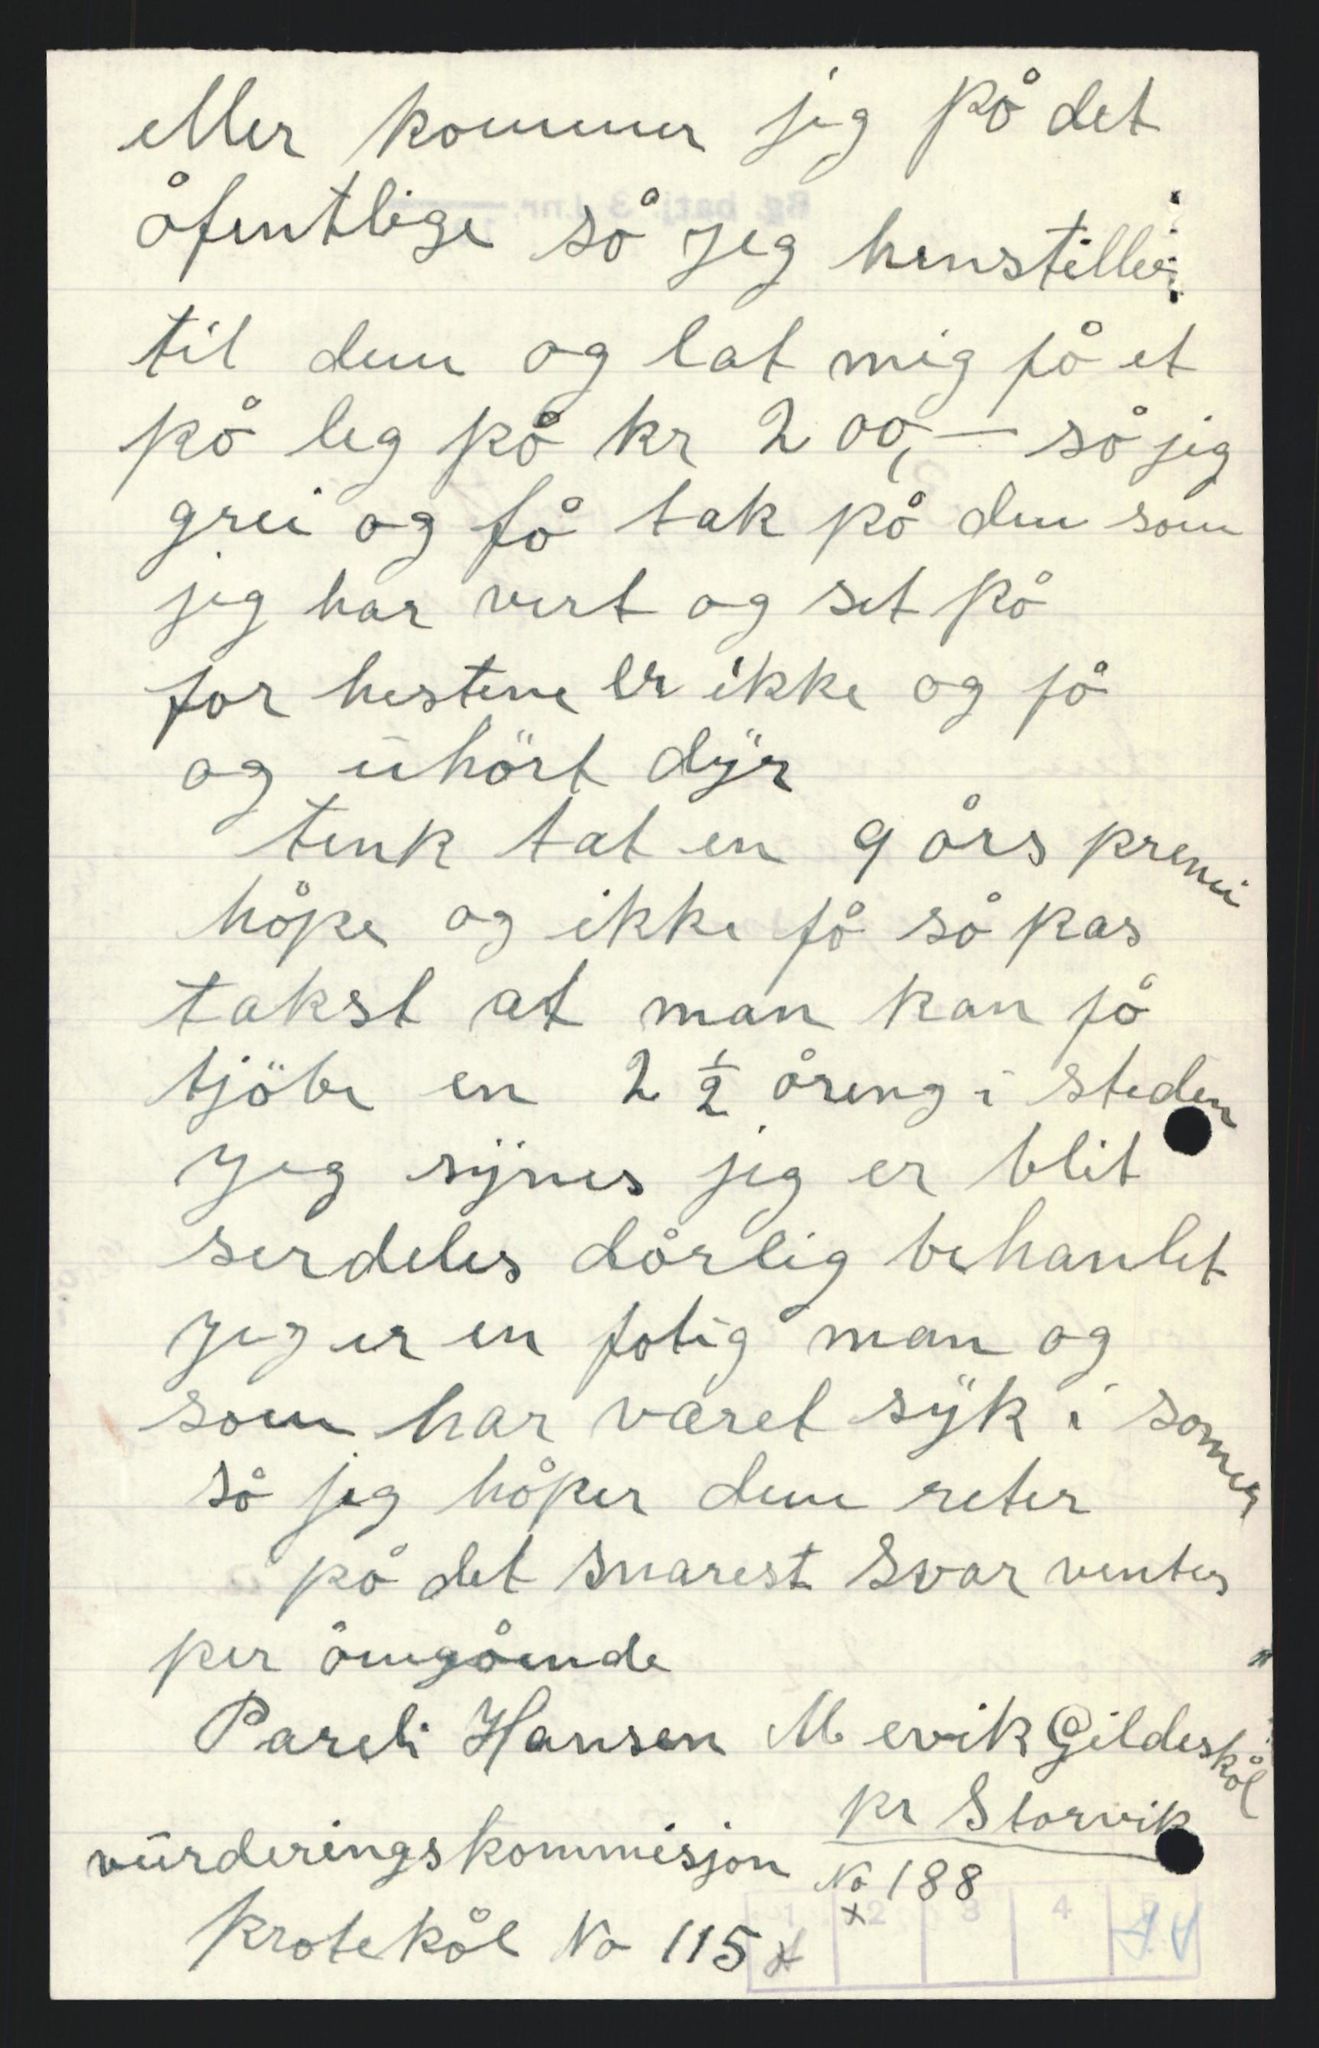 eller kommer jeg på det
åfentlige så jeg henstiller
til dem og lat mig få et
på leg på kr 200,— så jeg
grei og få tak på den som
jeg har vert og set på
for hestene er ikke og få
og uhört dyr
tenk tat en 9 års premi
håpe og ikke få så pas
takst at man kan få
tjöbe en 2 1/2 åreng i steden
Jeg synes jeg er blit
serdeles dårlig behanlet
jeg er en fatig man og
som har været syk i somer
så jeg håper dem reter
på det snarest Svar ventes
per ömgående
Pareli Hansen Mevik Gildeskål
pr Storvik
vurderingskommisjon No 188
Protekål No 115
1 2 3 4